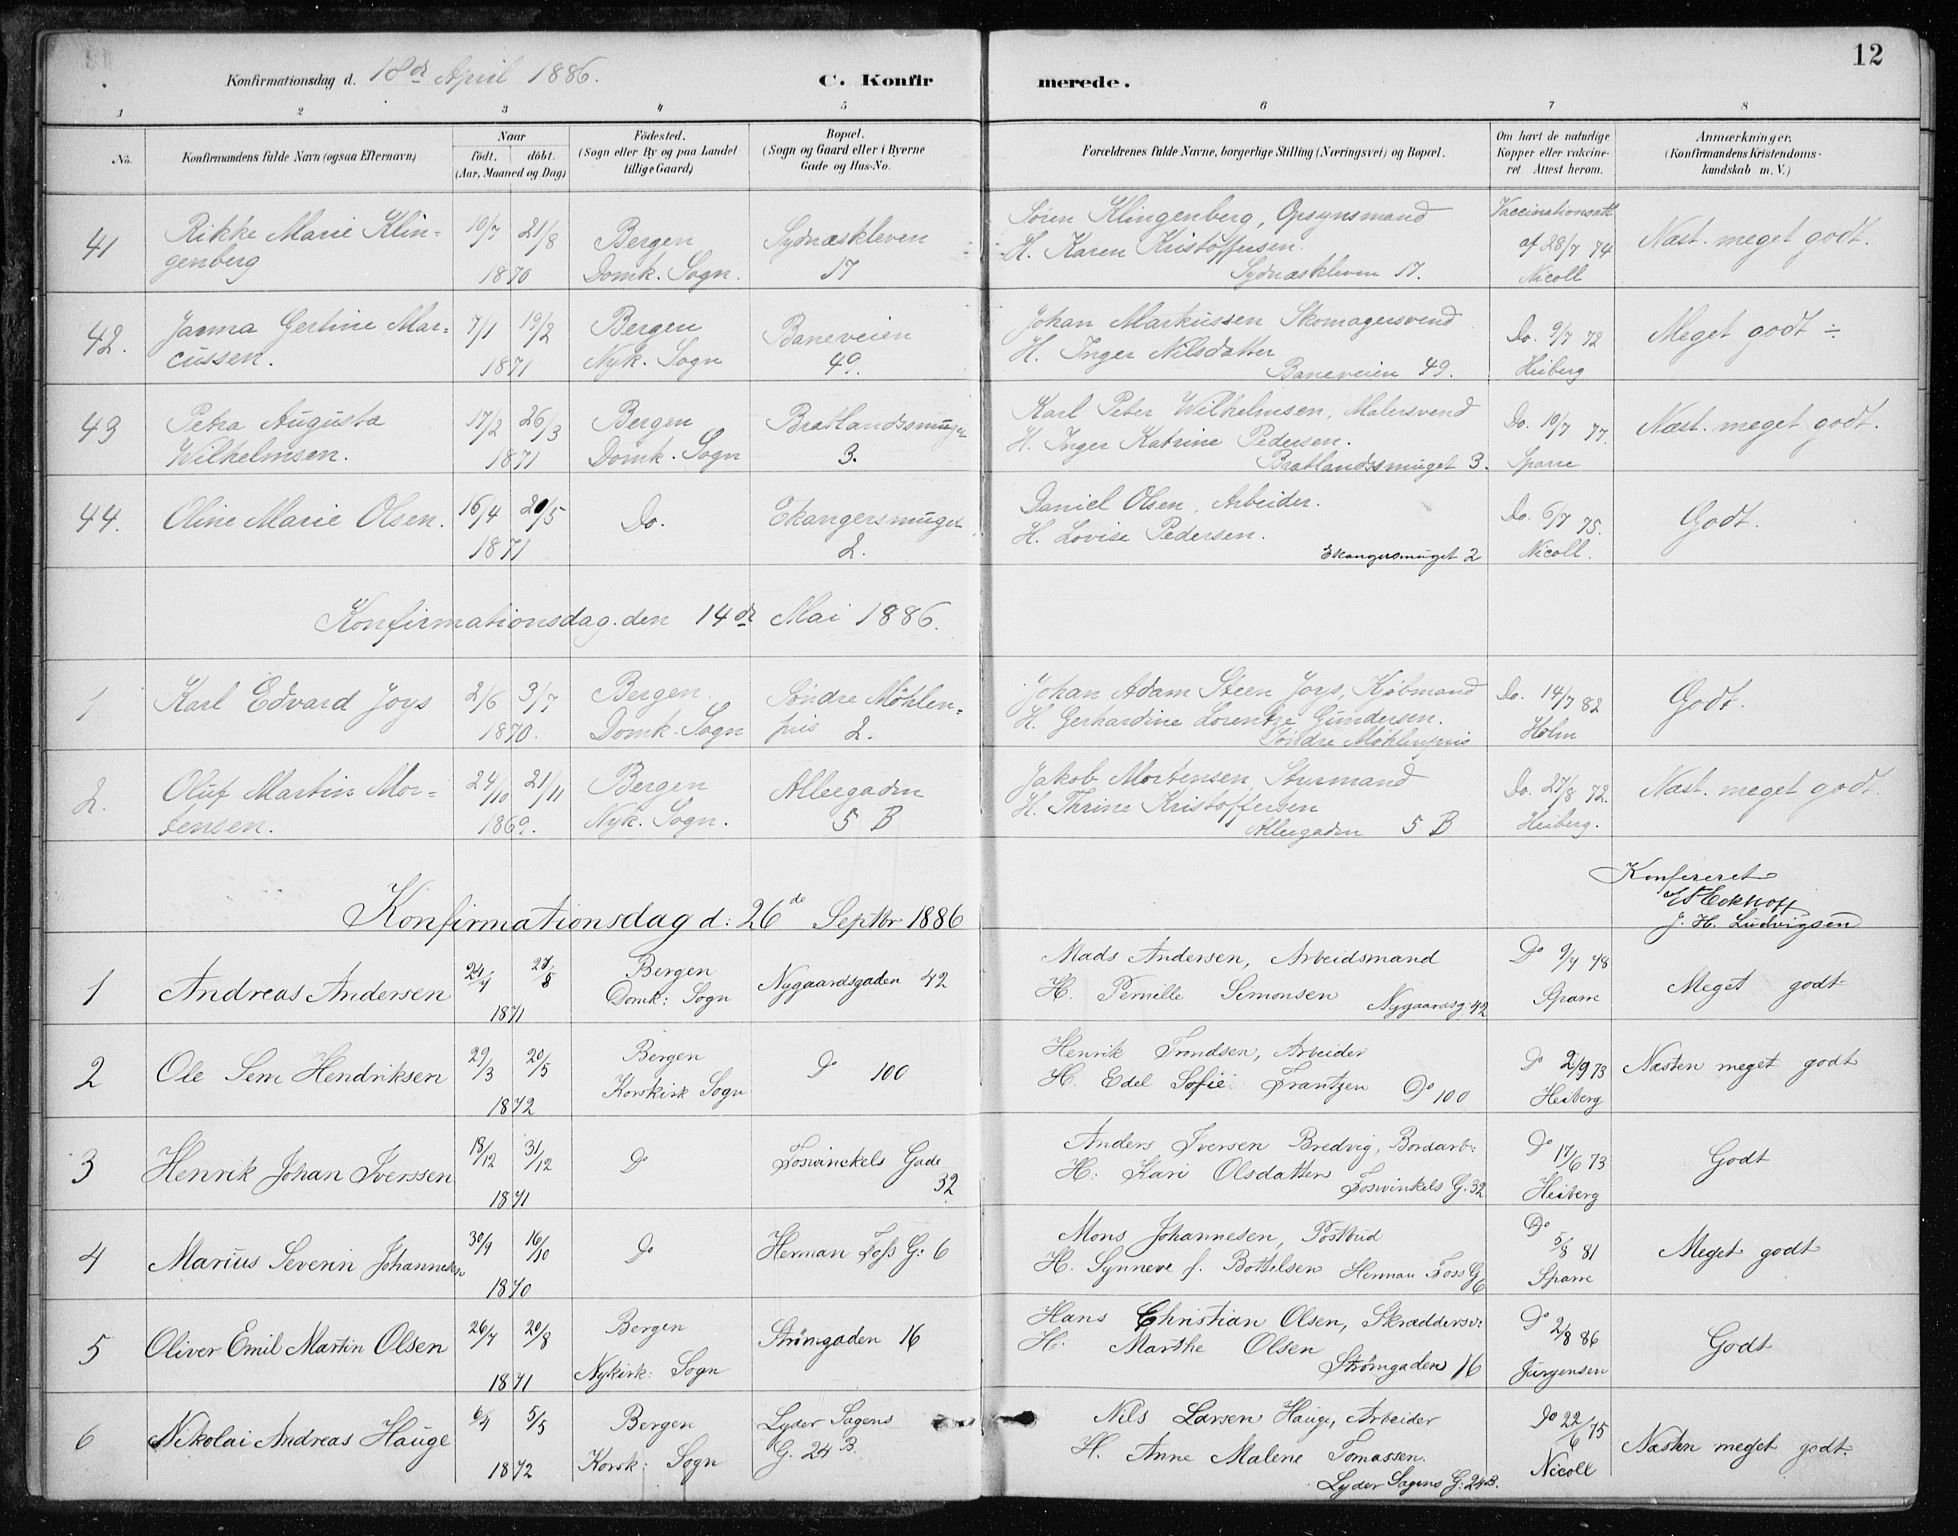 12
Konfirmationsdag d. 18de April 1886.
C. Konfirmerede.
1 2 3 4 5 6 7 8
No.
Konfirmandens fulde Navn (ogsaa Efternavn)
Naar
födt. döbt.
(Aar, Maaned og Dag)
Födested.
(Sogn eller By og paa Landet
tillige Gaard)
Bopæl.
(Sogn og Gaard eller i Byerne
Gade og Hus-No.
Forældrenes fulde Navne, borgerlige Stilling (Næringsvei) og Bopæl.
Om havt de naturlige
Kopper eller vakcine-
ret. Attest herom.
Anmærkninger.
(Konfirmandens Kristendoms-
kundskab m. V.)
41 Rikke Marie Klin-
genberg
10/7 21/8
1870
Bergen
Domk. Sogn.
Sydnæskleven
17
Sören Klingenberg, Opsynsmand
H. Karen Kristoffersen.
Sydnæskleven 17.
Vaccinationsatt
af 28/7 74
Nicoll
Næst. meget godt.
42. Janna Gertine Mar-
cussen.
7/1 19/2
1871
Bergen
Nyk. Sogn
Baneveien
49.
Johan Markussen Skomagersvend
H. Inger Nilsdatter
Baneveien 49.
Do. 9/7 72
Heiberg
Meget godt ÷
43 Petra Augusta
Wilhelmsen.
17/2 26/3
1871
Bergen
Domk. Sogn
Bratlandssmuget
3.
Karl Peter Wilhelmsen, Malersvend
H. Inger Katrine Pedersen.
Bratlandssmuget 3.
Do. 10/7 77.
Sparre
Næst. meget godt.
44. Oline Marie Olsen.
16/4 20/5
1871
Do.
Ekangersmuget
2.
Daniel Olsen, Arbeider.
H. Lovise Pedersen.
Ekangersmuget 2
Do. 6/7 75.
Nicoll.
Godt.
Konfirmationsdag. den 14de Mai 1886.
1 Karl Edvard Joys
2/6 3/7
1870.
Bergen
Domk. Sogn
Söndre Möhlen-
pris 2.
Johan Adam Steen Joys, Kjöbmand
H. Gerhardine Lorentze Gundersen.
Söndre Möhlenpris
Do. 14/7 82
Holm
Godt.
2. Oluf Martin Mor-
tensen.
24/10 21/11
1869.
Bergen
Nyk. Sogn.
Alleegaden
5 B
Jakob Mortensen Styrmand
H. Thrine Kristoffersen
Alleegaden 5 B
Do. 27/8 72.
Heiberg.
Næst. meget godt.
Konfereret
J. H. Ludvigsen
Konfirmationsdag d: 26de Septbr 1886
1 Andreas Andersen
24/4 27/8
1871
Bergen
Domk: Sogn
Nygaardsgaden 42
Mads Andersen, Arbeidsmand
H. Pernille Simonsen
Nygaardsg. 42
Do 9/7 78
Sparre
Meget godt
2 Ole Sem Hendriksen
29/3 20/5
1872
Bergen
Korskirk Sogn
Do 100
Henrik Trondsen, Arbeider
H. Edel Sofie Frantzen Do 100
Do 2/9 73
Heiberg
Næsten meget godt
3 Henrik Johan Iverssen
18/12 31/12
1871
Do
Foswinckels Gade
32
Anders Iversen Bredvig, Bordarb:
H: Kari Olsdatter
Foswinkels G. 32
Do 17/6 73
Heiberg
Godt
4 Marius Severin Johannesen
30/9 16/10
1870
Do
Herman Foss G: 6
Mons Johannesen, Postbud
H. Synneve f. Bottelsen Herman Foss G 6
Do 5/8 81
Sparre
Meget godt
5 Oliver Emil Martin Olsen
26/7 20/8
1871
Bergen
Nykirk: Sogn
Strømgaden 16
Hans Christian Olsen, Skræddersv:
H. Marthe Olsen
Strømgaden 16
Do 2/8 86
Jürgensen
Godt
6 Nikolai Andreas Hauge
6/4 5/5
1872
Bergen
Korsk: Sogn
Lyder Sagens
G. 24 B.
Nils Larsen Hauge, Arbeider
H. Anne Malene Tomassen.
Lyder Sagens G. 24B.
Do 22/6 75
Nicoll
Næsten meget godt.